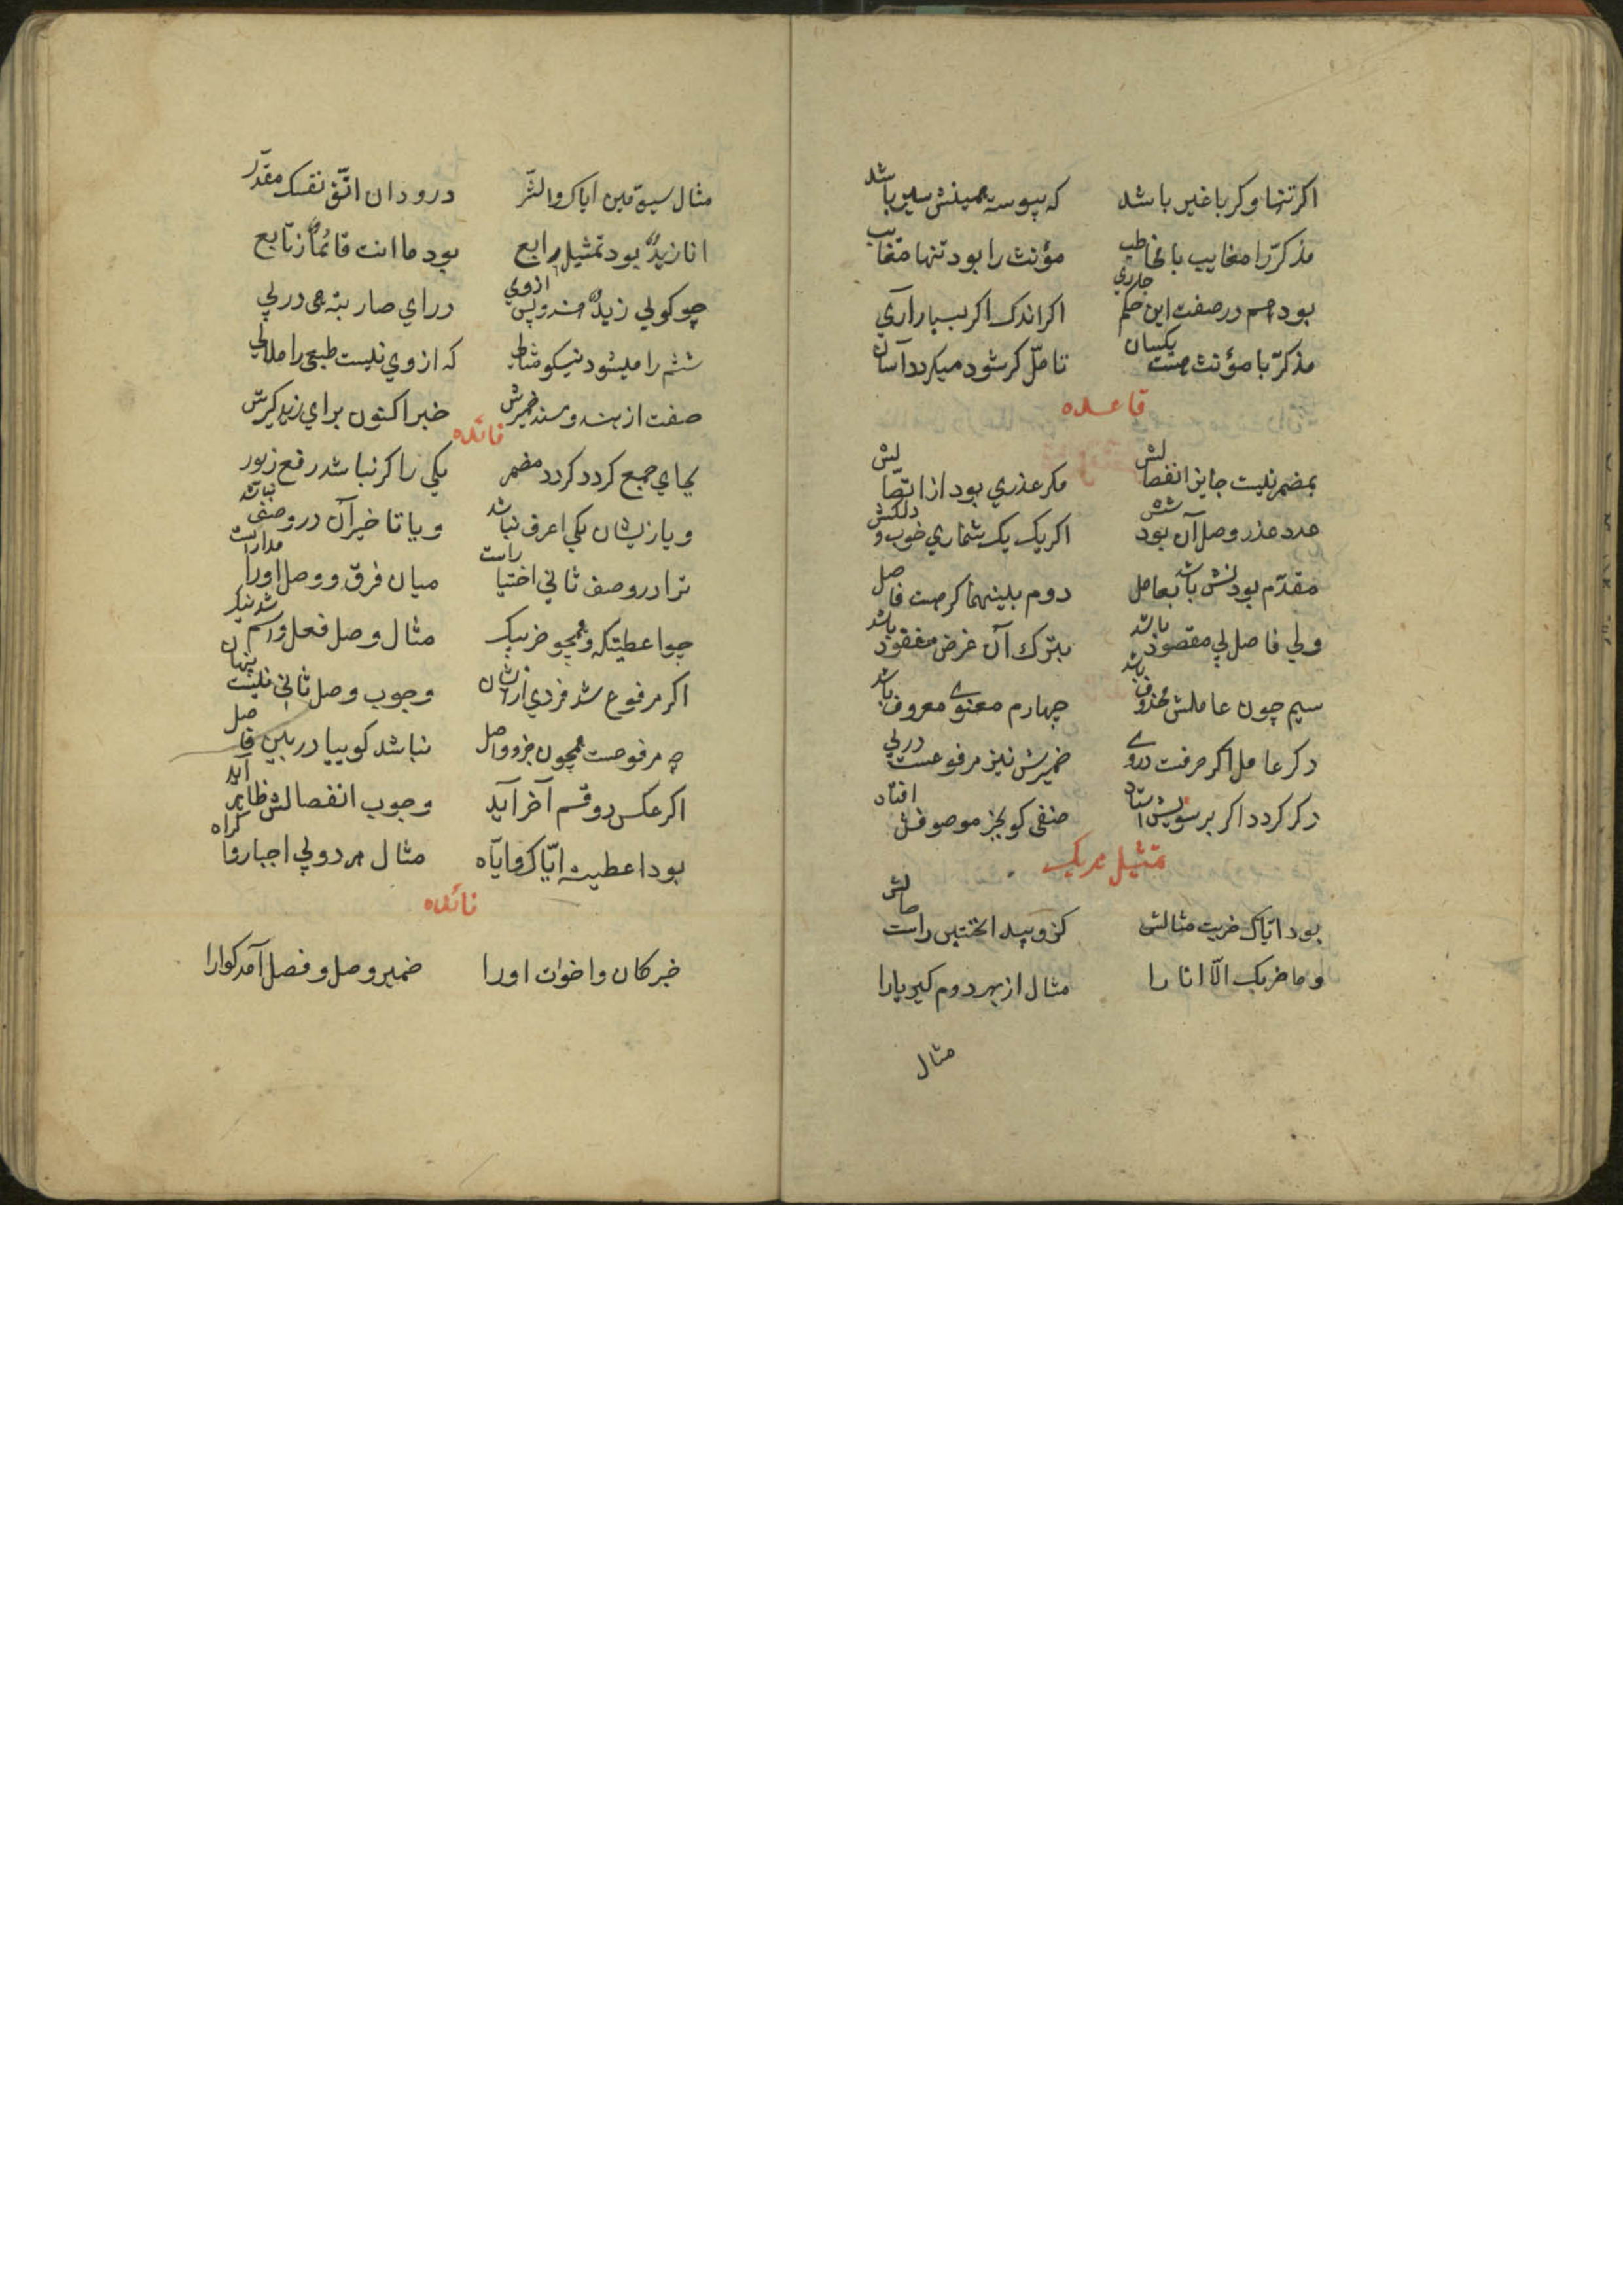 اکر تنها و کر با غیر باشد که پیوسته همینش سیر باشد
مذکر را مغایب با مخاطب مؤنث را بود تنها مغایب
بود هم در صفت این حکم جاری اکر اندک اکر بسیار آری
مذکر با مؤنث هست یکسان تامّل کر شود میکردد آسان
قاعده
بمضمر نیست جایز انفصالش مکر عذری بود از اتّصالش
عدد عذر وصل آن بود شش اکر یک یک شماری خوب و دلکش
مقدّم بودنش باشد بعامل دوم بینهما کر هست فاصل
ولی فاصل پی مقصود باشد بترک آن غرض مفقود باشد
سیم چون عاملش محذوف باشد چهارم معنوی معروف باشد
دکر عامل اکر حرفست در وی ضمیرش نیز مرفوعست در پی
دکر کردد اکر بر سویش استاد صفتی کو بجز موصوفش افتاد
تمثیل هر یک
بود ایّاک ضربت مثالش کزو پیدا نخستین راست حالش
و ما ضربک الّا انا را مثال از بهر دوم کیر یارا
مثال
مثال سیومین ایاک والشّر درو دان اتّق نفسک مقدّر
انا زیدٌ بود تمثیل رابع بود ما انت قائماً ز تابع
چو کوئی زیدٌ هند و پس از وی در آی ضاربته هی در پی
ششم را میشود نیکو مثالی که از وی نیست طبعی را ملالی
صفت از هند و سند ضمیرش خبر اکنون برای زید کیرش
فائده
بجای جمع کردد کردد مضمر یکی را کر نباشد رفع زیور
و یا زیشان یکی اعرف نباشد و یا تاخیر آن در وصفی نباشد
ترا در وصف ثانی اختیار است میان فرق و وصل او را مدار است
چو اعطیتکه و همچو ضربیک مثال وصل فعل و اسم شد نیک
اکر مرفوع شد فردی از ایشان وجوب وصل ثانی نیست پنهان
چه مرفوعست همچون جزو واصل نباشد کوییا در بین فاصل
اکر عکس دو قسم آخر آید وجوب انفصالش ظاهر آید
بود اعطیته ایّاک و ایّاه مثال هر دو پی اجبار و اکراه
فائده
خبر کان و اخوات او را ضمیر وصل و فصل آمد کوارا